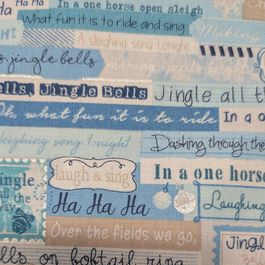 Ha Ha
In a one horse open sleigh
What fun it is to ride and sing
A sleighing song tonight
Making
jingle bells
making spirits bright
Bells, Jingle Bells
Jingle all t
Oh what fun it is to ride
In a o
sleighing song t night
Dashing through the
ingle
all
the
way
laugh & sing
In a one horse
Ha Ha Ha
Laughing
Over the fields we go,
Jingle
lls on bobtail ring